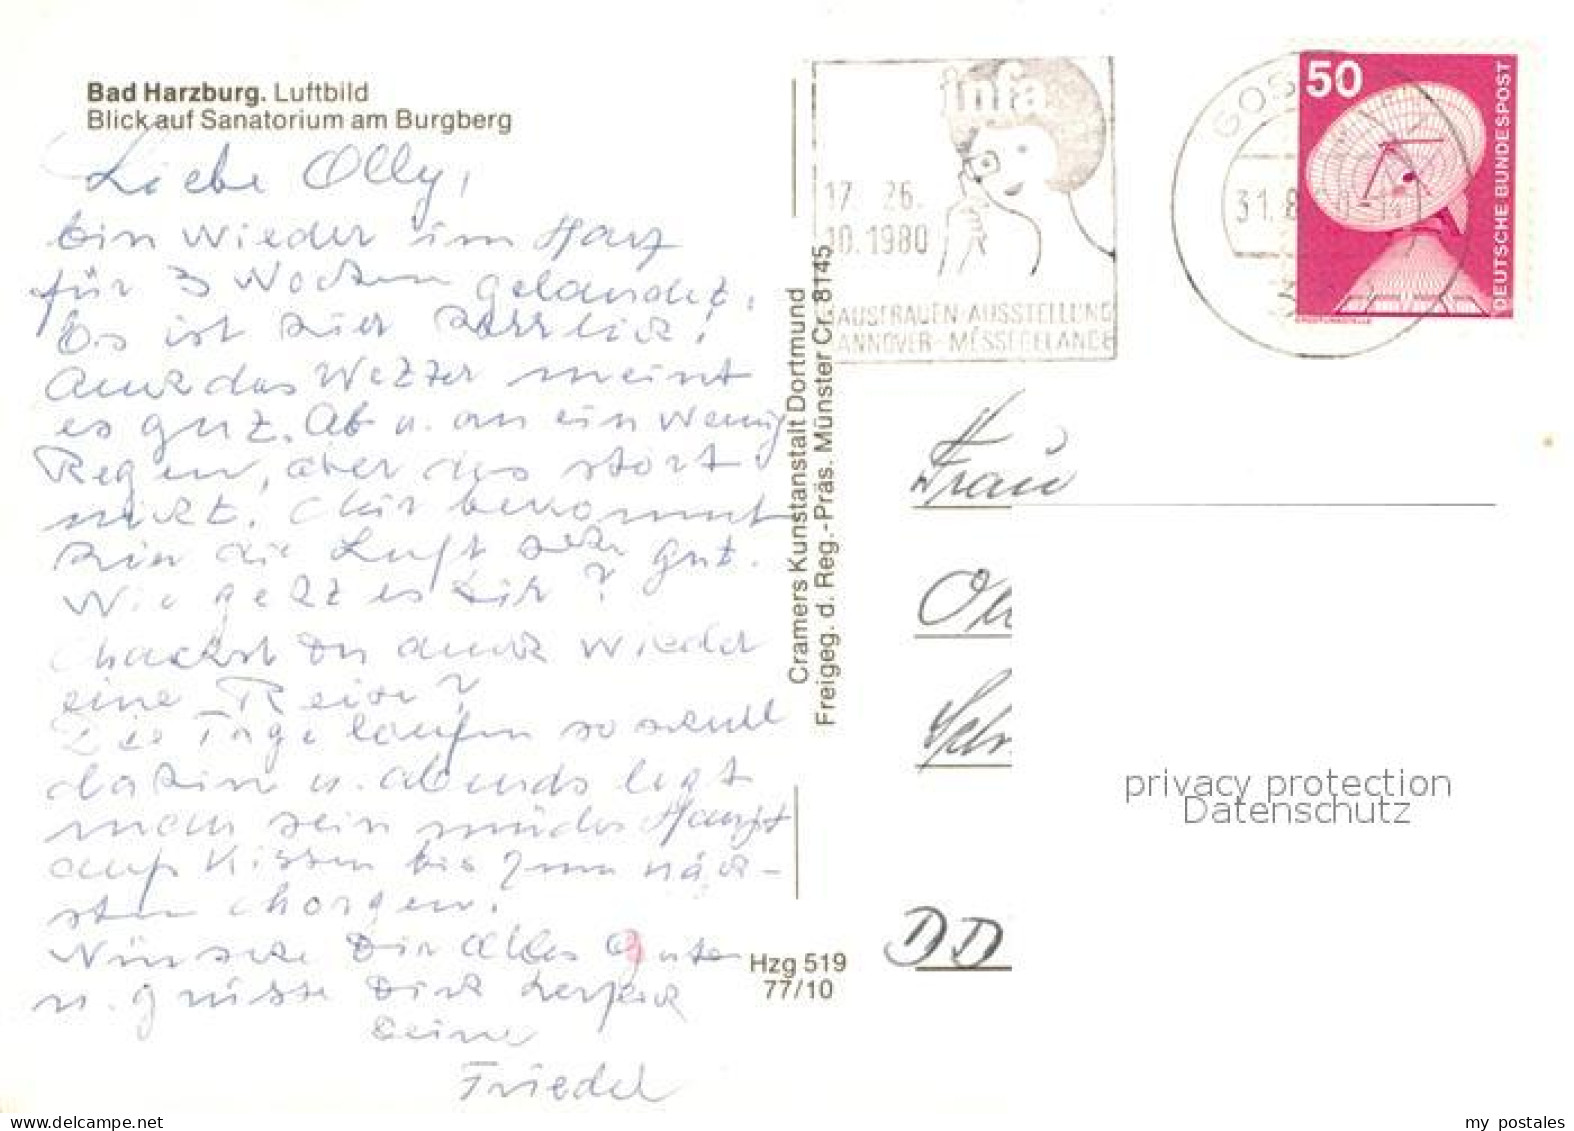 Bad Harzburg. Luftbild
Blick auf Sanatorium am Burgberg
Liebe Olly,
bin wieder im Harz
für 3 Wochen gelandet.
Es ist hier herrlich!
Auch das Wetter meint
es gut. Ab u. an ein wenig
Regen, aber das stört
nicht. Mir bekommt
hier die Luft sehr gut.
Wie geht es Dir?
Machst Du auch wieder
eine Reise?
Die Tage laufen so schnell
dahin u. abends legt
man sein müdes Haupt
aufs Kissen bis zum näch-
sten Morgen.
Wünsche Dir alles Gute
u. grüsse Dich herzlich
Deine
Friedel
Cramers Kunstanstalt Dortmund
Freigeg. d. Reg.-Präs. Münster Cr. 8145
Hzg 519
77/10
infa
17. 26.
10. 1980
HAUSFRAUEN-AUSSTELLUNG
HANNOVER-MESSEGELÄNDE
GOS
31. 8
50
DEUTSCHE BUNDESPOST
Frau
DD
privacy protection
Datenschutz
my postales